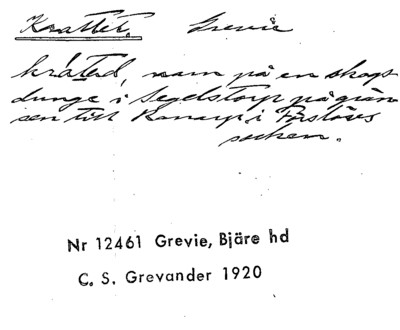 Krattet. Grevie
kråtəd, namn på en skogs
dunge i Segelstorp på grän
sen till Ranarp i Förslövs
socken.
Nr 12461 Grevie, Bjäre hd
C. S. Grevander 1920